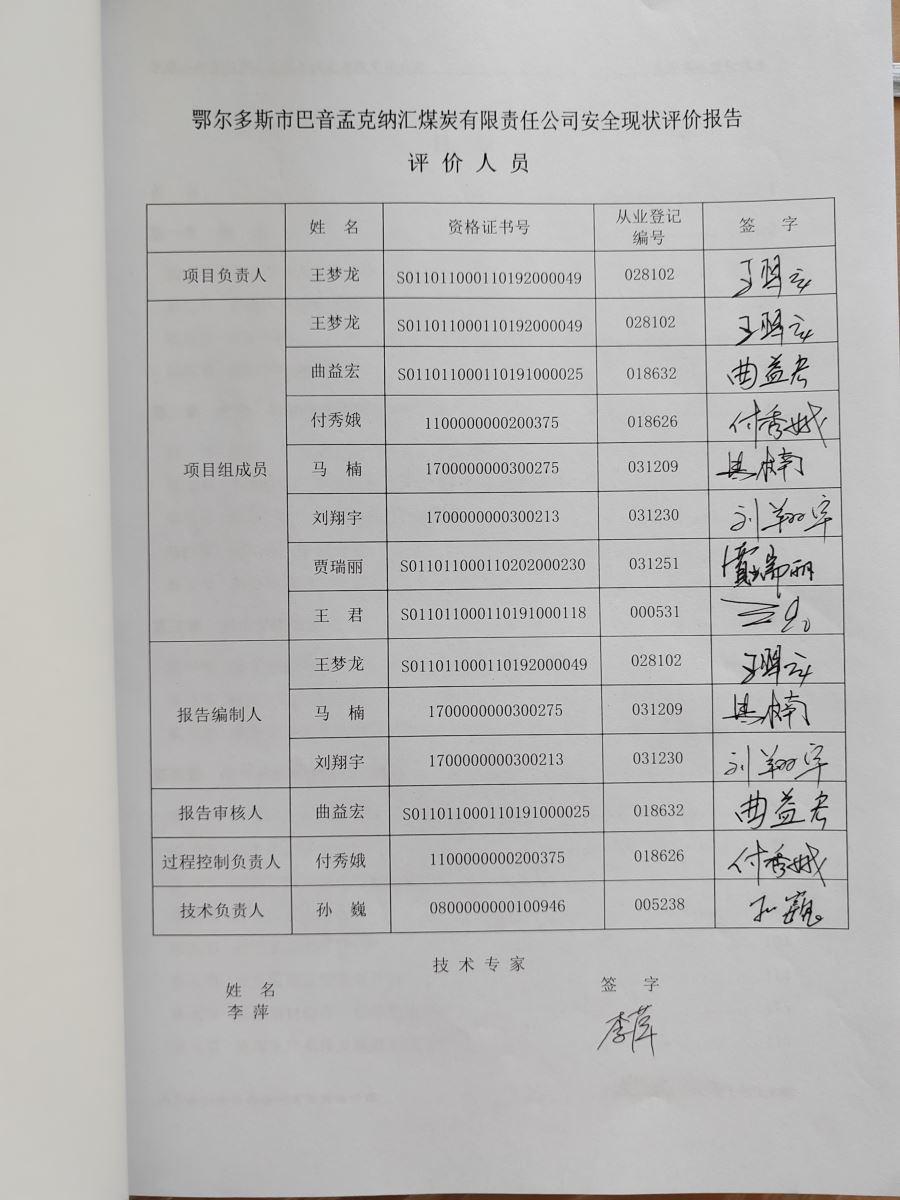 鄂尔多斯市巴音孟克纳汇煤炭有限责任公司安全现状评价报告
评 价 人 员
姓 名 资格证书号 从业登记编号 签 字
项目负责人 王梦龙 S011011000110192000049 028102 王梦龙
项目组成员 王梦龙 S011011000110192000049 028102 王梦龙
曲益宏 S011011000110191000025 018632 曲益宏
付秀娥 1100000000200375 018626 付秀娥
马 楠 1700000000300275 031209 马楠
刘翔宇 1700000000300213 031230 刘翔宇
贾瑞丽 S011011000110202000230 031251 贾瑞丽
王 君 S011011000110191000118 000531 王君
报告编制人 王梦龙 S011011000110192000049 028102 王梦龙
马 楠 1700000000300275 031209 马楠
刘翔宇 1700000000300213 031230 刘翔宇
报告审核人 曲益宏 S011011000110191000025 018632 曲益宏
过程控制负责人 付秀娥 1100000000200375 018626 付秀娥
技术负责人 孙 巍 0800000000100946 005238 孙巍
技 术 专 家
姓 名 签 字
李 萍 李萍